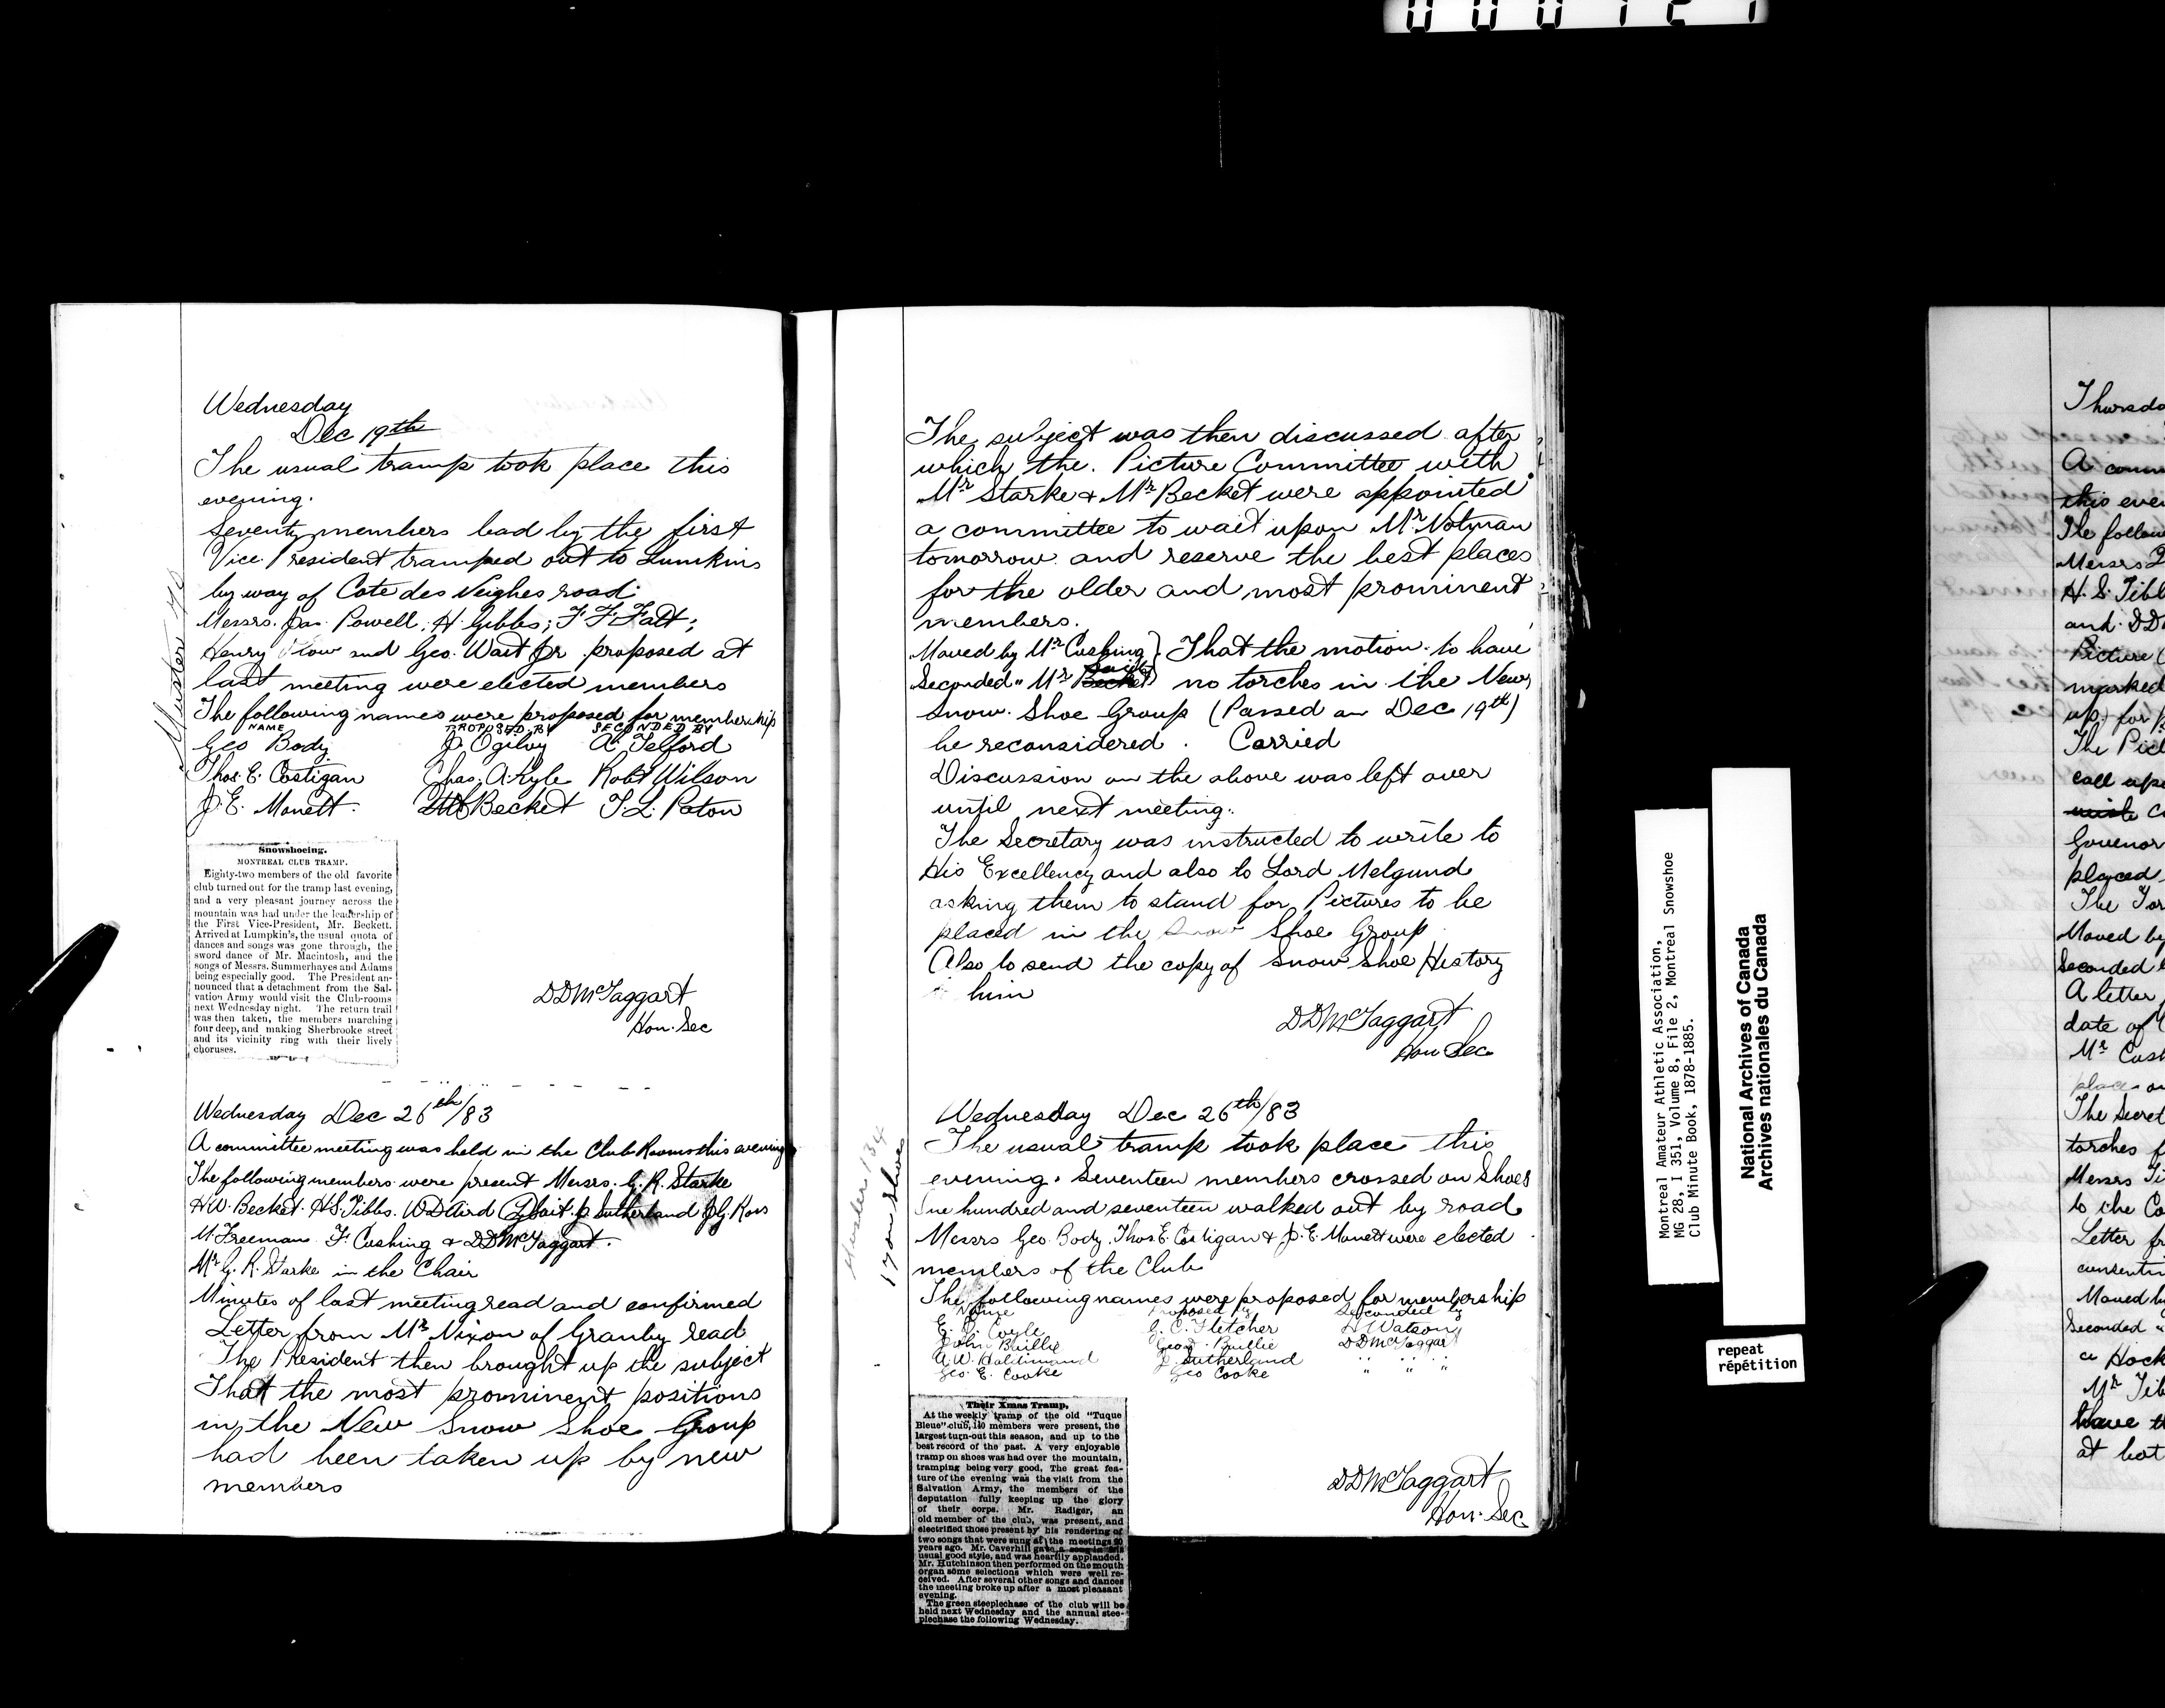 Wednesday
Dec 19th
The usual tramp took place this
evening.
Seventy members lead by the first
Vice President tramped out to Lumkins
by way of Cote des Neighes road.
Messrs. Jas. Powell, H. Gibbs; F. F. Fatt;
Henry and Geo. Wait Jr proposed at
last meeting were elected members
The following names were proposed for membership
NAME PROPOSED BY SECONDED BY
Geo Body J. Ogilvy A. Telford
Thos. E. Costigan Chas. A. Kyle Robt Wilson
J. E. Manett. Becket T. L. Paton
Muster 70
Snowshoeing.
MONTREAL CLUB TRAMP.
Eighty-two members of the old favorite
club turned out for the tramp last evening,
and a very pleasant journey across the
mountain was had under the leadership of
the First Vice-President, Mr. Beckett.
Arrived at Lumpkin's, the usual quota of
dances and songs was gone through, the
sword dance of Mr. Macintosh, and the
songs of Messrs. Summerhayes and Adams
being especially good. The President an-
nounced that a detachment from the Sal-
vation Army would visit the Club-rooms
next Wednesday night. The return trail
was then taken, the members marching
four deep, and making Sherbrooke street
and its vicinity ring with their lively
choruses.
DDMcTaggart
Hon. Sec
Wednesday Dec 26th/83
A committee meeting was held in the Club Rooms this evening
The following members were present Messrs. G. R. Starke
H.W. Becket. H.S. Tibbs. W D Aird J. Sutherland J G. Ross
M. Freeman F. Cushing & DDMcTaggart.
Mr G. R. Starke in the Chair
Minutes of last meeting read and confirmed
Letter from Mr Nixon of Granby read
The President then brought up the subject
That the most prominent positions
in the New Snow Shoe Group
had been taken up by new
members
The subject was then discussed after
which the Picture Committee with
Mr Starke & Mr Becket were appointed
a committee to wait upon Mr Notman
tomorrow and reserve the best places
for the older and most prominent
members.
Moved by Mr Cushing } That the motion to have
Seconded " Mr Becket no torches in the New
Snow Shoe Group (Passed on Dec 19th)
be reconsidered. Carried
Discussion on the above was left over
until next meeting.
The Secretary was instructed to write to
His Excellency and also to Lord Melgund
asking them to stand for Pictures to be
placed in the Snow Shoe Group
Also to send the copy of Snow Shoe History
him
DDMcTaggart
Hon Sec
Wednesday Dec 26th/83
The usual tramp took place this
evening. Seventeen members crossed on Shoes
One hundred and seventeen walked out by road
Messrs Geo. Body. Thos E. Costigan & J. E. Manett were elected
members of the Club
The following names were proposed for membership
Name Proposed by Seconded by
Coyle C. Fletcher Watson
John Baillie Geo Baillie DDMcTaggart
A. W. Haldimand J Sutherland " " "
Geo. E. Cooke Geo Cooke " " "
Muster 134
17 on Shoes
Their Xmas Tramp.
At the weekly tramp of the old "Tuque
Bleue" club, 140 members were present, the
largest turn-out this season, and up to the
best record of the past. A very enjoyable
tramp on shoes was had over the mountain,
tramping being very good. The great fea-
ture of the evening was the visit from the
Salvation Army, the members of the
deputation fully keeping up the glory
of their corps. Mr. Radiger, an
old member of the club, was present, and
electrified those present by his rendering of
two songs that were sung at the meetings 20
years ago. Mr. Caverhill gave a song in his
usual good style, and was heartily applauded.
Mr. Hutchinson then performed on the mouth
organ some selections which were well re-
ceived. After several other songs and dances
the meeting broke up after a most pleasant
evening.
The green steeplechase of the club will be
held next Wednesday and the annual stee-
plechase the following Wednesday.
DDMcTaggart
Hon. Sec
Montreal Amateur Athletic Association,
MG 28, I 351, Volume 8, File 2, Montreal Snowshoe
Club Minute Book, 1878-1885.
National Archives of Canada
Archives nationales du Canada
repeat
répétition
A
this
The
Messrs
H. S.
and
Picture
marked
up for
The
call
Governor
placed
The
Moved by
Seconded
A letter
date of
Mr
place
The
torches
Messrs
to the
Letter
Moved by
Seconded "
a
Mr
have
at